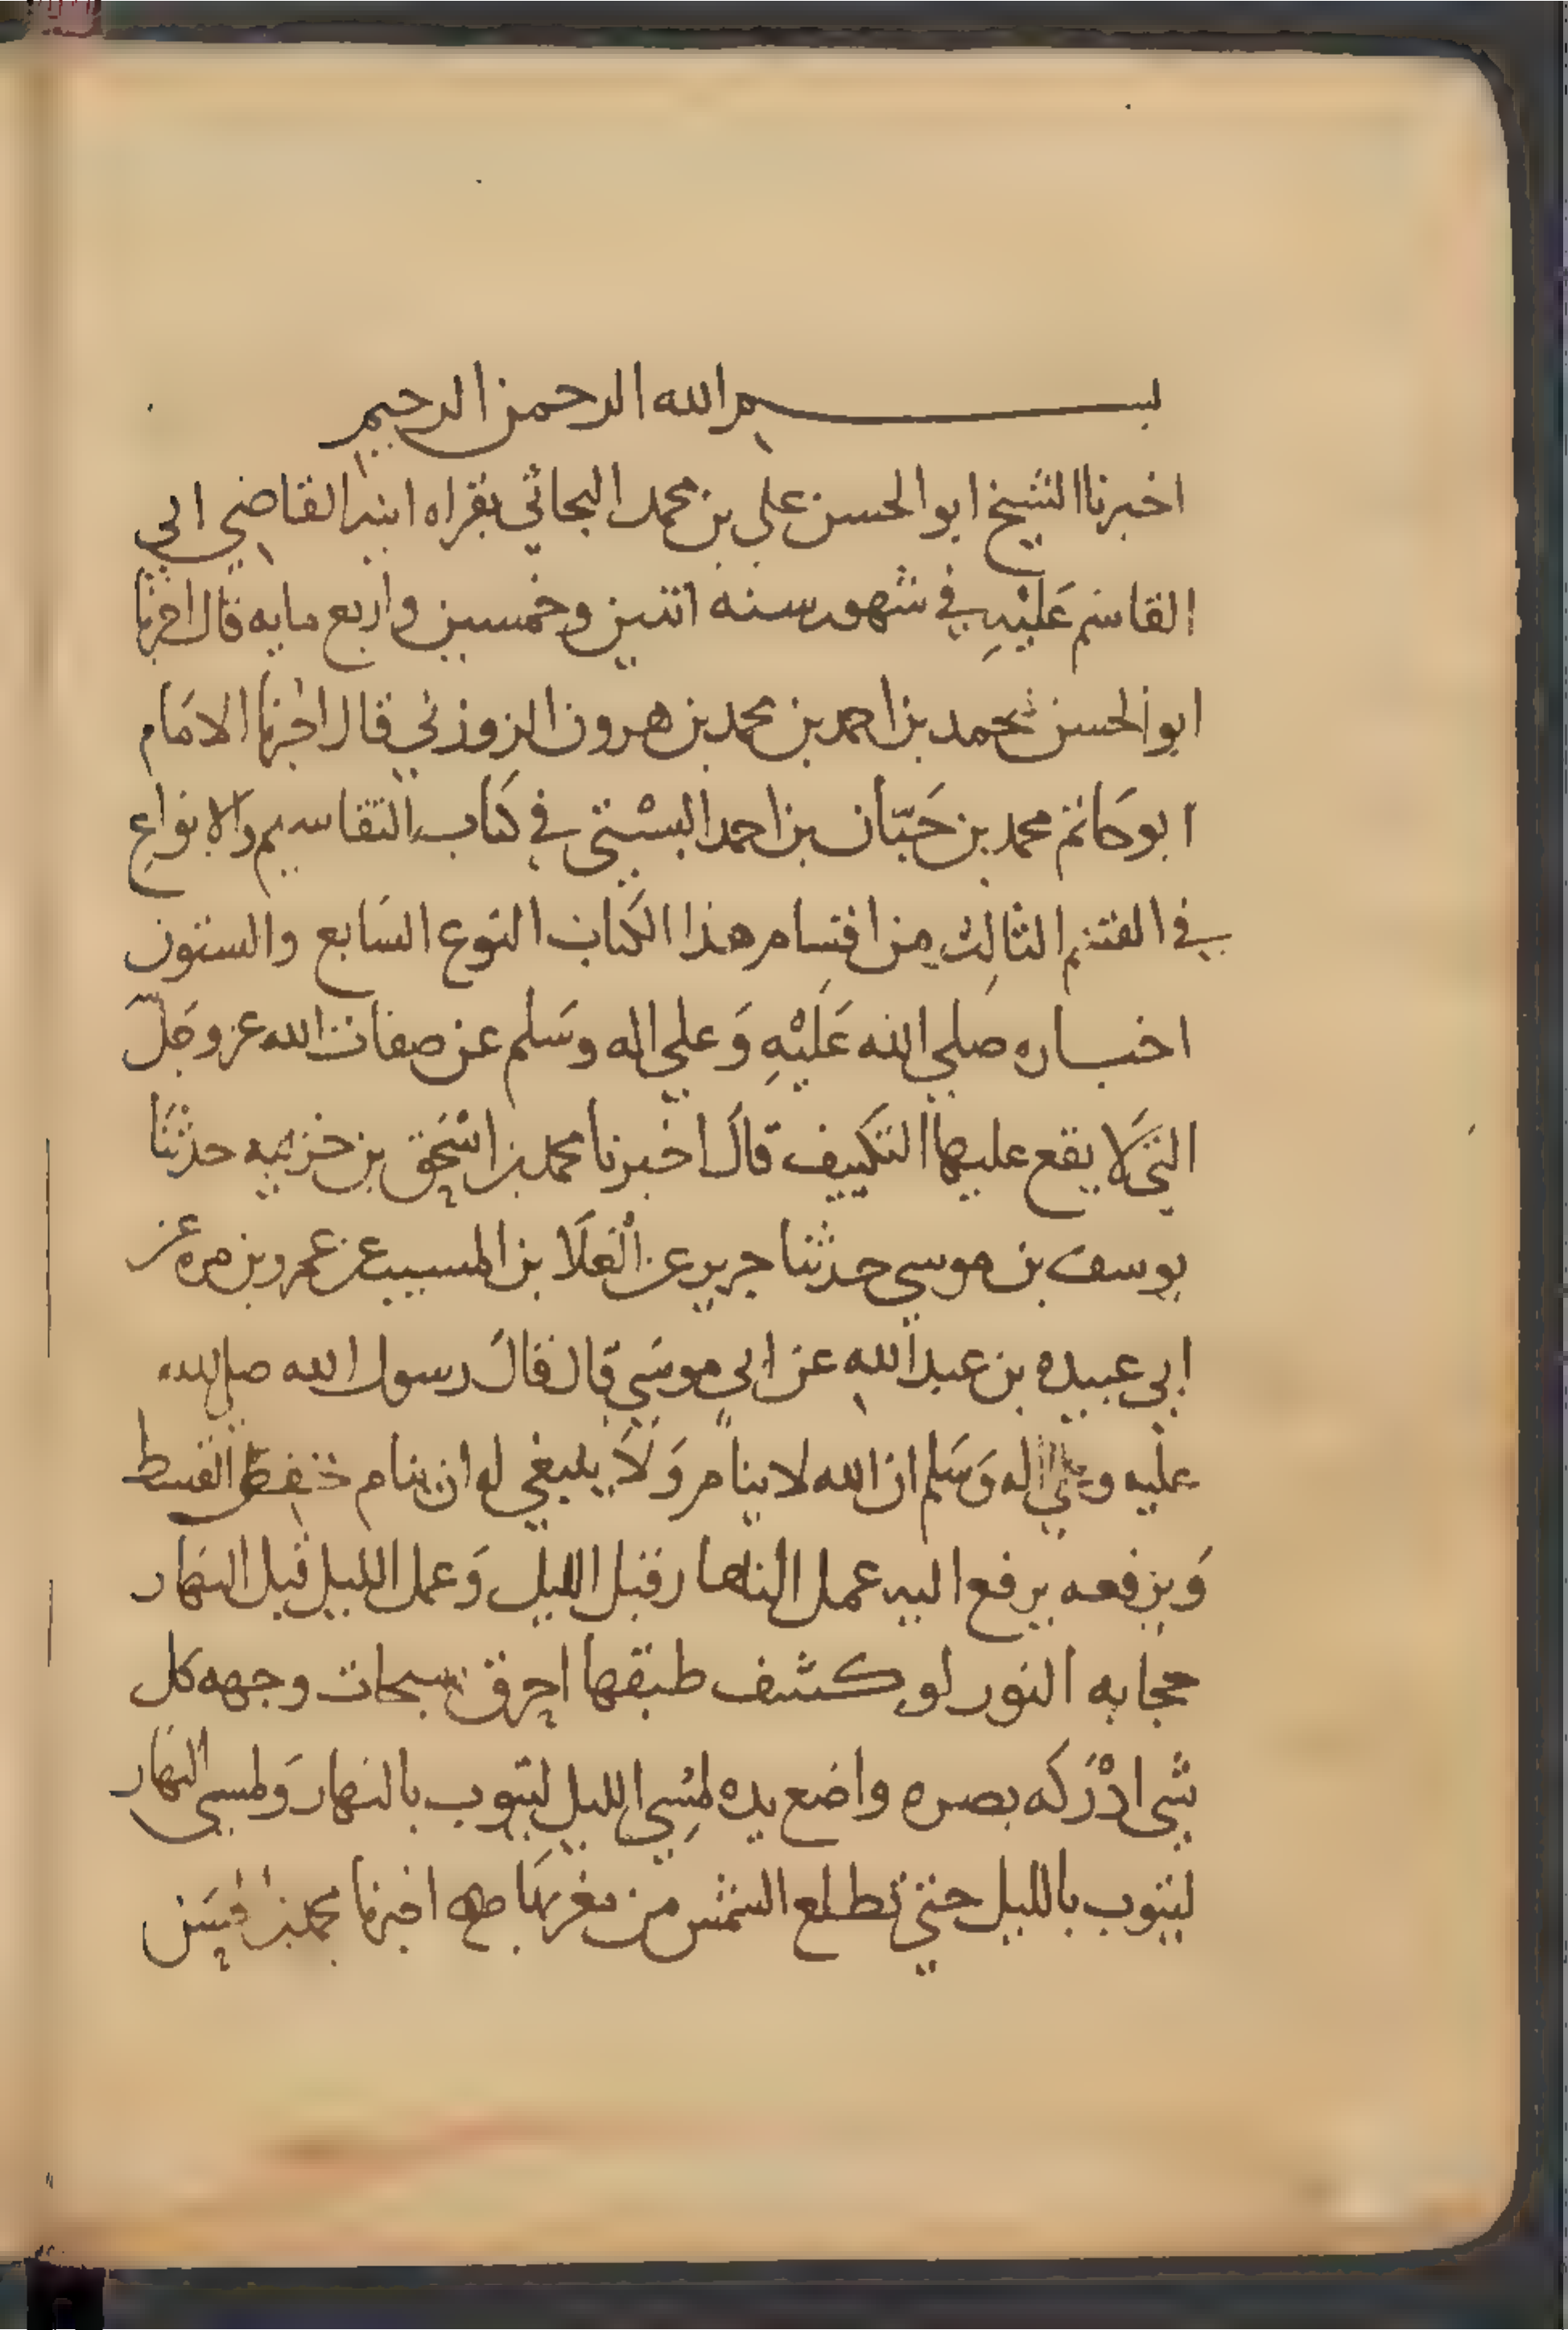 بسم الله الرحمن الرحيم
اخبرنا الشيخ ابو الحسن علي بن محمد البحاثي بقراه ابنه القاضي ابي
القاسم عَليْهِ في شهور سنه اثنين وخمسين واربع مايه قال اخبرنا
ابو الحسن محمد بن احمد بن محمد بن هرون الزوزني قال اخبرنا الامام
ابو حَاتم محمد بن حَبّان بن احمد البسْتي في كتاب التقاسيم والانواع
في القسم الثالث من اقسام هذا الكتاب النوع السَابع والستون
اخباره صلي الله عَلَيْهِ وَعلي اله وسَلم عن صفات الله عز وجَلّ
التي لا يقع عليها التكييف قالَ اخبرنا محمد بن اسْحق بن خزيمه حدثنَا
يوسف بن موسي حدثنا جرير عن الْعَلَا بن المسيب عن عمرو بن مره عن
ابي عبيده بن عبد اللهِ عن ابي موسَي قال قالَ رسول الله صلي الله
عليْه وعلي اله وَسَلم ان الله لا ينام وَلَا ينبغي له ان ينام يخفض القسط
وَيرْفعه يرفع اليه عمل النهار قبل الليل وَعمل الليل قبل النهار
حجابه النور لو كشف طبقها احرق سبحات وجهه كل
شي ادْرَكه بصره واضع يده لمسِي الليل ليتوب بالنهار وَلمسي النهار
ليتوب بالليل حتي تطلع الشمس من مغربهَا صح اخبرنا محمد بن